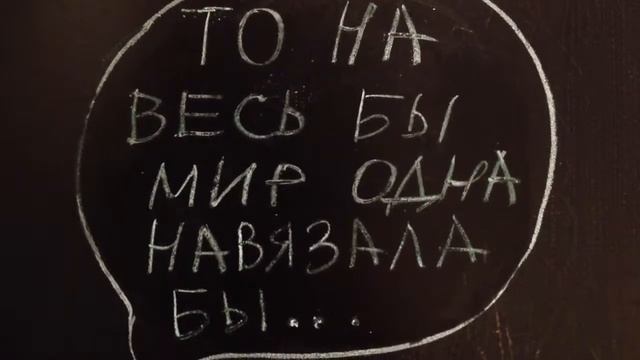 ТО НА
ВЕСЬ БЫ
МИР ОДНА
НАВЯЗАЛА
БЫ...